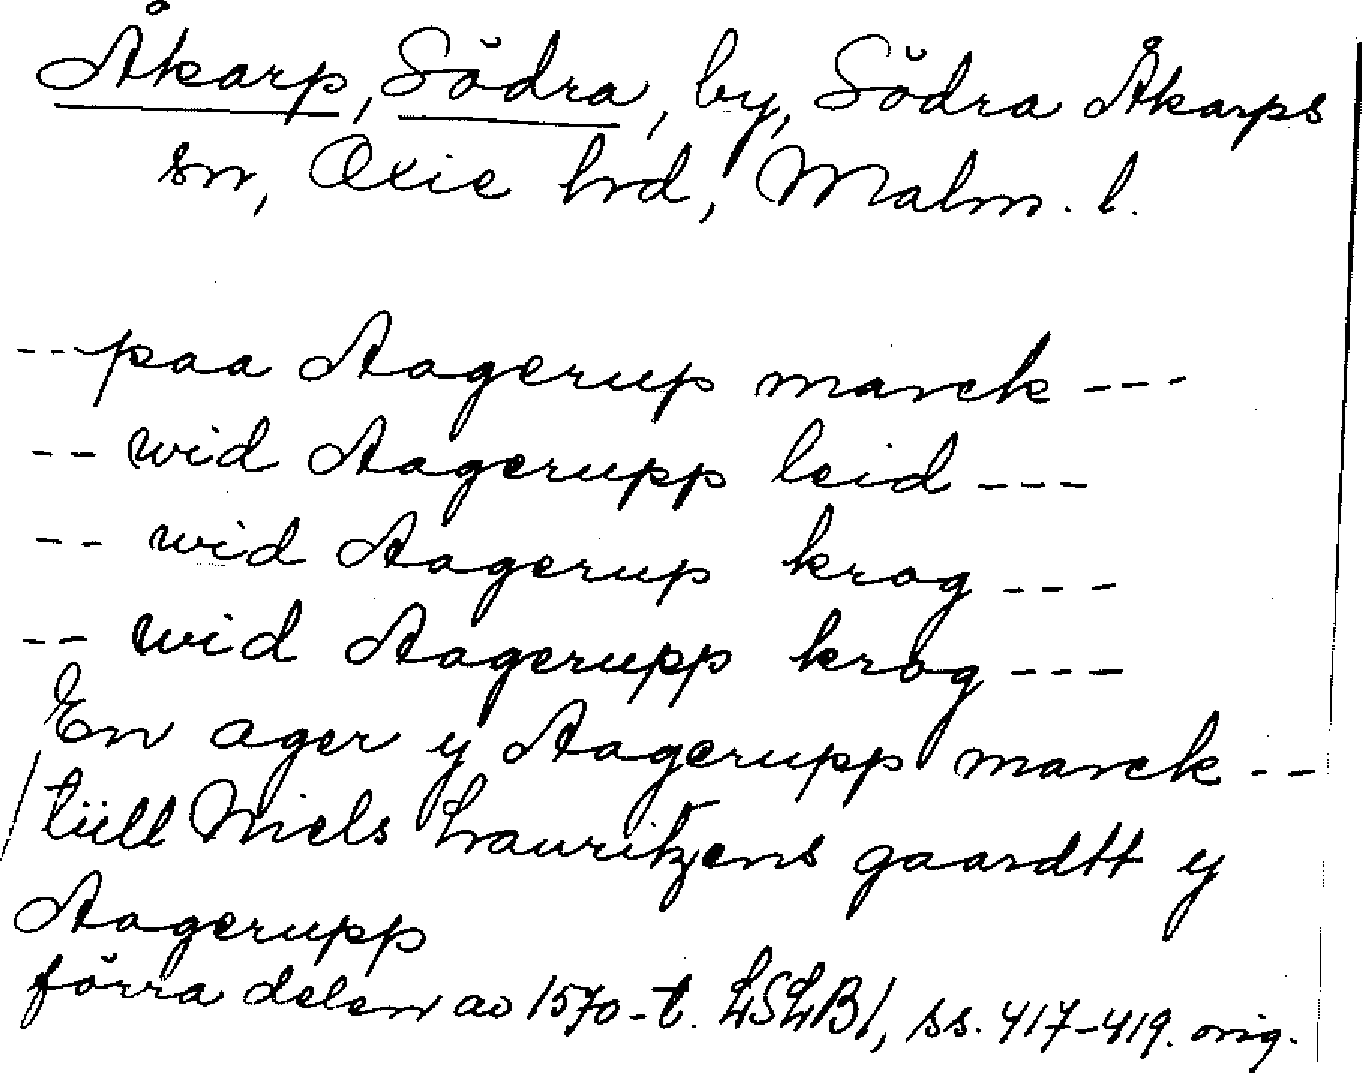 Åkarp, Södra, by, Södra Åkarps
sn, Oxie hrd, Malm. l.
--- paa Aagerup marck ---
-- wid Aagerupp leid ---
-- wid Aagerup krog ---
-- wid Aagerupp krog ---
En ager y Aagerupp marck --
/tüll Niels Lauritzens gaardtt y
Aagerupp
förra delen av 1570-t. LSLB1, ss. 417-419. orig.